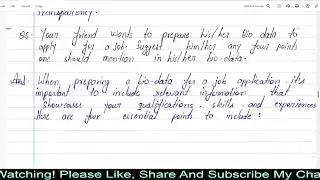 transparency.
Q5- Your friend wants to prepare his/her Bio data to
apply for a Job. Suggest him/her any four points
one should mention in his/her bio-data.
Ans! When preparing a bio-data for a job application, it's
important to include relevant information that
showcases your qualifications, skills and experiences
Here are four essential points to include:
Watching! Please Like, Share And Subscribe My Cha